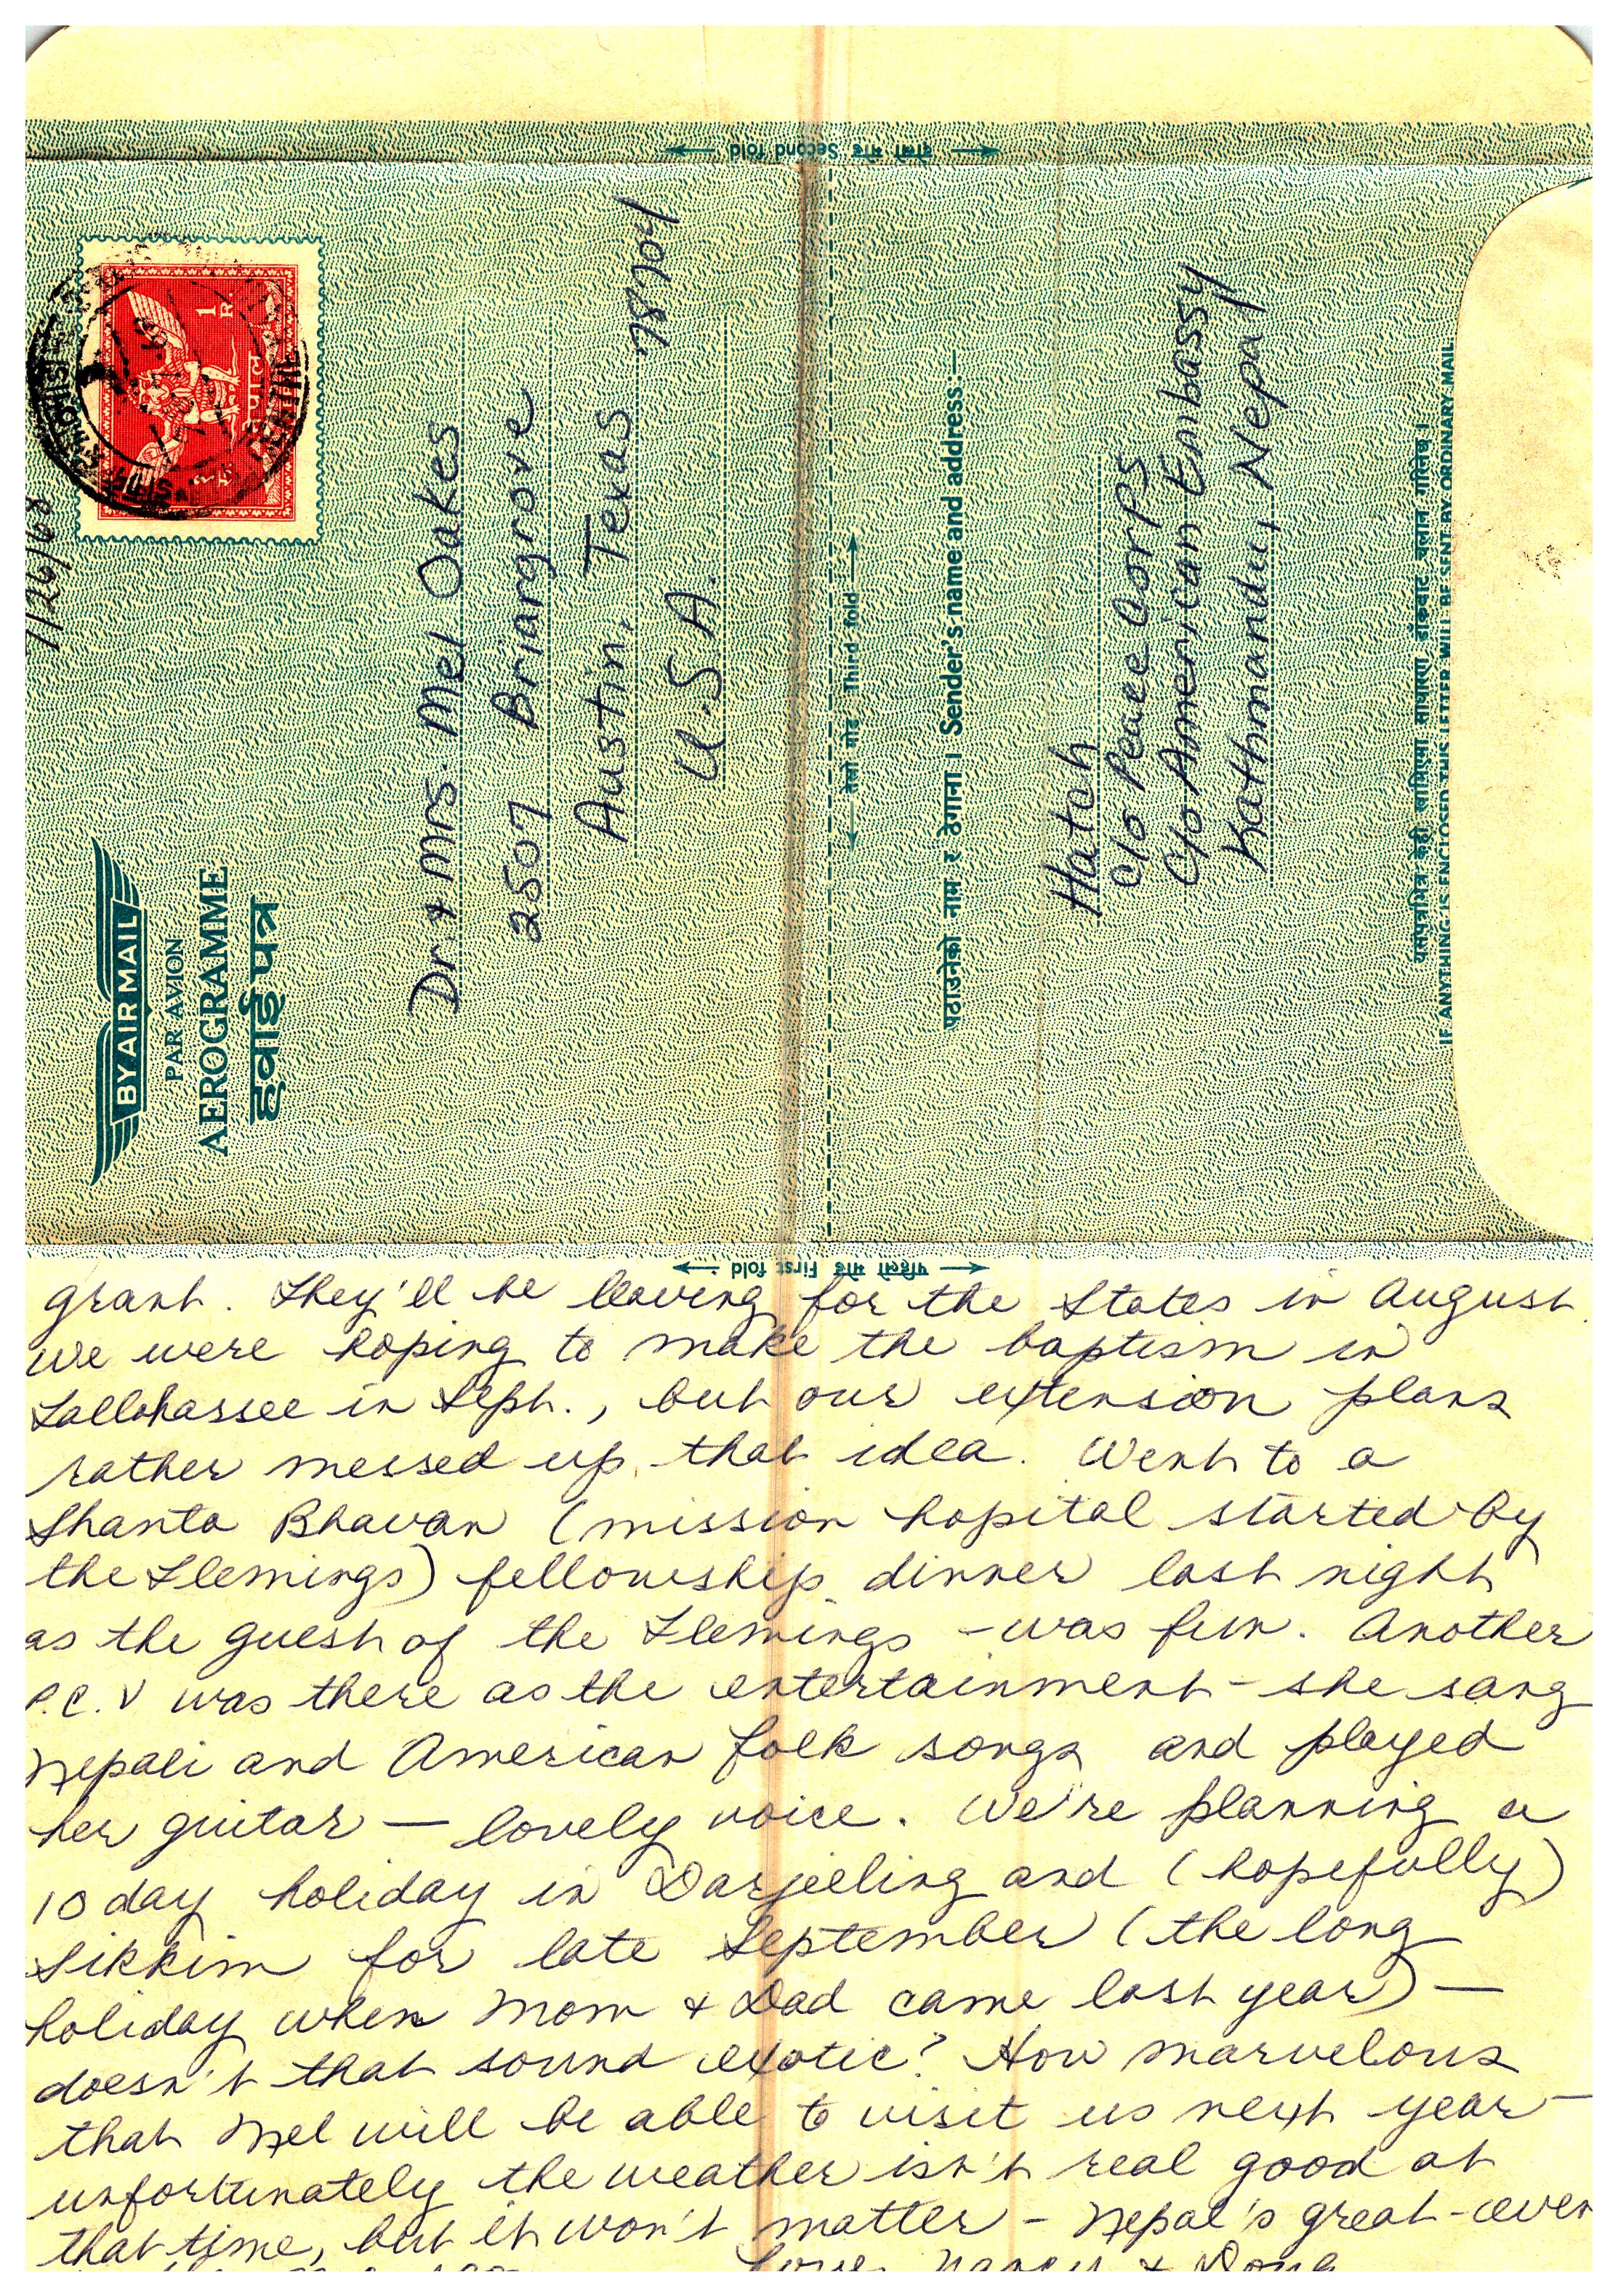 दोस्रो मोड Second fold
7/26/68
1 R.
नेपाल
BY AIR MAIL
PAR AVION
AEROGRAMME
हवाई पत्र
Dr. & Mrs. Mel Oakes
2507 Briargrove
Austin, Texas 78704
U.S.A.
तेस्रो मोड Third fold
पठाउनेको नाम र ठेगाना । Sender's name and address:—
Hatch
c/o Peace Corps
c/o American Embassy
Kathmandu, Nepal
यसपत्रभित्र केही खामिएमा साधारण डाँकबाट चलान गरिनेछ ।
IF ANYTHING IS ENCLOSED THIS LETTER WILL BE SENT BY ORDINARY MAIL
पहिलो मोड First fold
grant. They'll be leaving for the States in August.
We were hoping to make the baptism in
Tallahassee in Sept., but our extension plans
rather messed up that idea. Went to a
Shanta Bhavan (mission hopital started by
the Flemings) fellowship dinner last night
as the guest of the Flemings – was fun. Another
P.C.V was there as the entertainment – she sang
Nepali and American folk songs and played
her guitar — lovely voice. We're planning a
10 day holiday in Darjeeling and (hopefully)
Sikkim for late September (the long
holiday when Mom & Dad came last year) —
doesn't that sound exotic? How marvelous
that Mel will be able to visit us next year –
unfortunately the weather isn't real good at
that time, but it won't matter – Nepal's great – ever
Love, Nancy & Doug